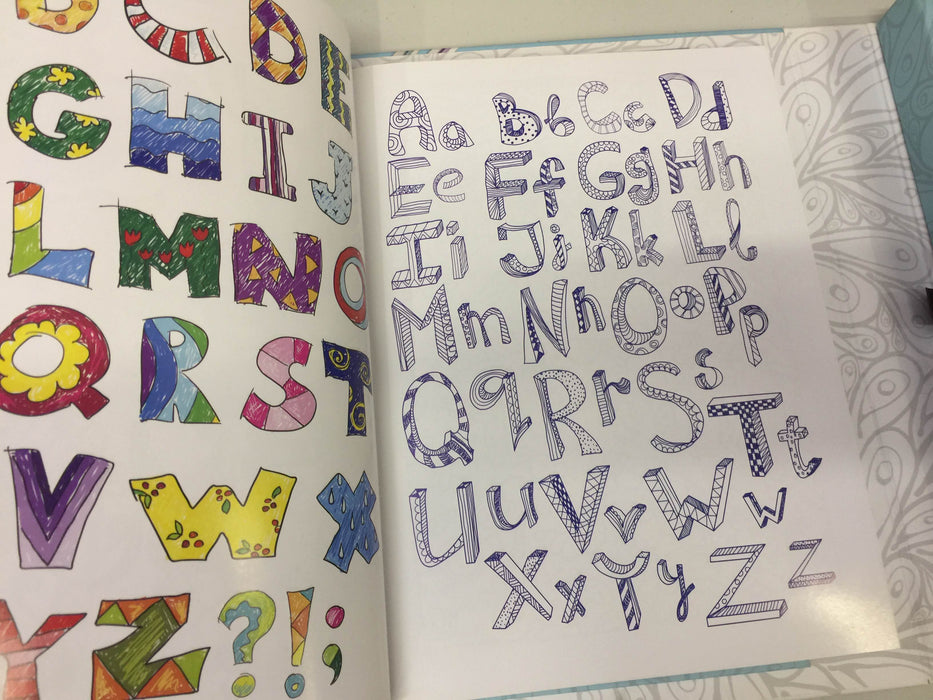 D C D E
G H I J
L M N O
Q R S T
V W X
Y Z ? ! ;
Aa Bb Cc Dd
Ee Ff Gg Hh
Ii Jj Kk Ll
Mm Nn Oo Pp
Qq Rr Ss Tt
Uu Vv Ww
Xx Yy Zz